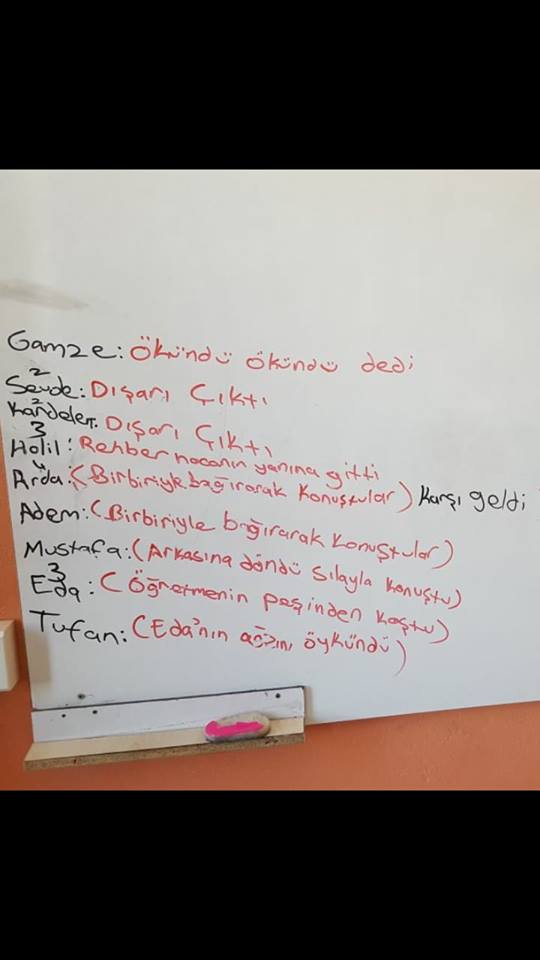 Gamze: Öküncü Öküncü dedi
2
Sevde: Dışarı Çıktı
2
Kardelen: Dışarı Çıktı
3
Halil: Rehber hocanın yanına gitti
4
Arda: (Birbiriyle bağırarak konuştular) Karşı geldi
Adem: (Birbiriyle bağırarak konuştular)
Mustafa: (Arkasına döndü Sılayla konuştu)
3
Eda: (Öğretmenin peşinden koştu)
Tufan: (Eda'nın ağzını öykündü)